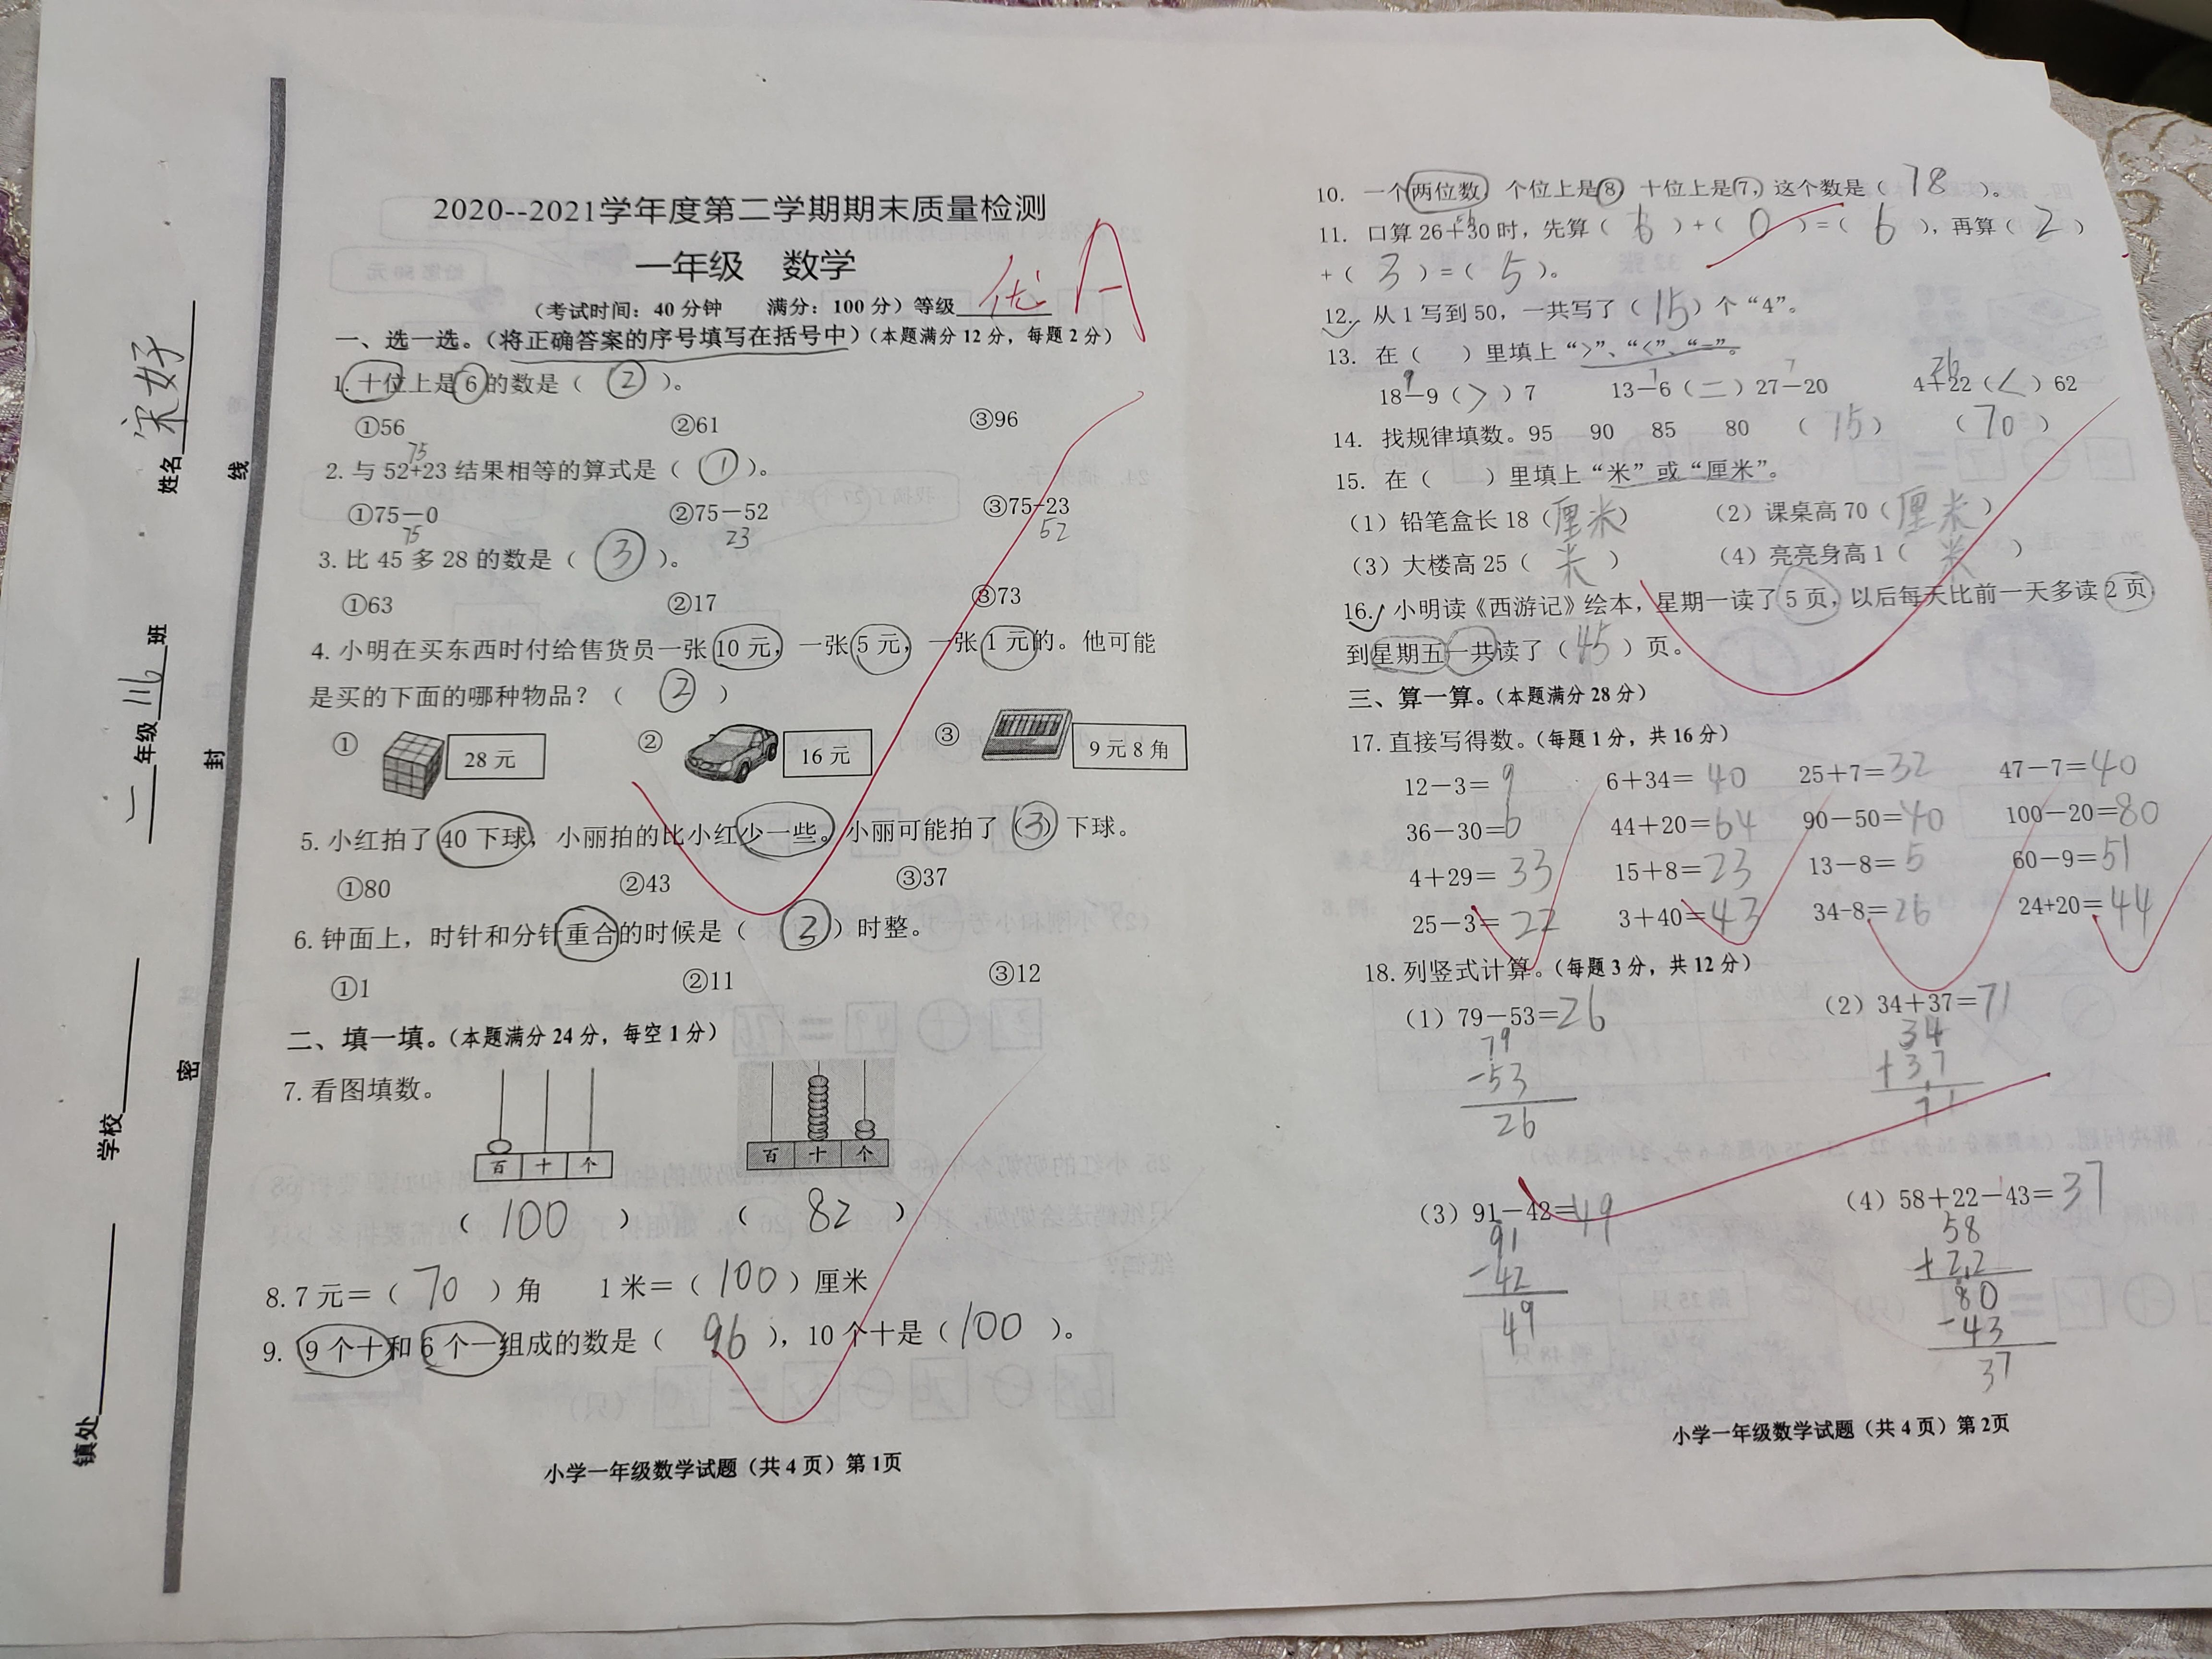 2020--2021学年度第二学期期末质量检测
一年级 数学
（考试时间：40 分钟 满分：100 分）等级 优 A
一、选一选。（将正确答案的序号填写在括号中）（本题满分 12 分，每题 2 分）
1. 十位上是 6 的数是（ ② ）。
①56 ②61 ③96
75
2. 与 52+23 结果相等的算式是（ ① ）。
①75－0 ②75－52 ③75-23
75 23 52
3. 比 45 多 28 的数是（ ③ ）。
①63 ②17 ③73
4. 小明在买东西时付给售货员一张 10 元，一张 5 元，一张 1 元的。他可能
是买的下面的哪种物品？（ ② ）
① 28 元 ② 16 元 ③ 9 元 8 角
5. 小红拍了 40 下球，小丽拍的比小红少一些。小丽可能拍了（③）下球。
①80 ②43 ③37
6. 钟面上，时针和分针重合的时候是（ ③ ）时整。
①1 ②11 ③12
二、填一填。（本题满分 24 分，每空 1 分）
7. 看图填数。
百 十 个 百 十 个
（ 100 ） （ 82 ）
8. 7 元＝（ 70 ）角 1 米＝（ 100 ）厘米
9. 9 个十和 6 个一组成的数是（ 96 ），10 个十是（ 100 ）。
小学一年级数学试题（共 4 页）第 1页
姓名 宋好
一 年级 班
学校
镇处
线
封
密
10. 一个两位数，个位上是 8，十位上是 7，这个数是（ 78 ）。
11. 口算 26＋30 时，先算（ 6 ）+（ 0 ）=（ 6 ），再算（ 2 ）
+（ 3 ）=（ 5 ）。
12. 从 1 写到 50，一共写了（ 15 ）个“4”。
13. 在（ ）里填上“>”、“<”、“=”。
9 7 7 26
18－9（ > ）7 13－6（ = ）27－20 4＋22（ < ）62
14. 找规律填数。95 90 85 80 （ 75 ） （ 70 ）
15. 在（ ）里填上“米”或“厘米”。
（1）铅笔盒长 18（厘米） （2）课桌高 70（厘米）
（3）大楼高 25（ 米 ） （4）亮亮身高 1（ 米 ）
16. 小明读《西游记》绘本，星期一读了 5 页，以后每天比前一天多读 2 页，
到星期五一共读了（ 45 ）页。
三、算一算。（本题满分 28 分）
17. 直接写得数。（每题 1 分，共 16 分）
12－3＝9 6＋34＝40 25＋7＝32 47－7＝40
36－30＝6 44＋20＝64 90－50＝40 100－20＝80
4＋29＝33 15＋8＝23 13－8＝5 60－9＝51
25－3＝22 3＋40＝43 34-8＝26 24+20＝44
18. 列竖式计算。（每题 3 分，共 12 分）
（1）79－53＝26 （2）34＋37＝71
79 34
-53 +37
26 71
（3）91－42＝49 （4）58＋22－43＝37
91 58
-42 +22
49 80
-43
37
小学一年级数学试题（共 4 页）第 2页